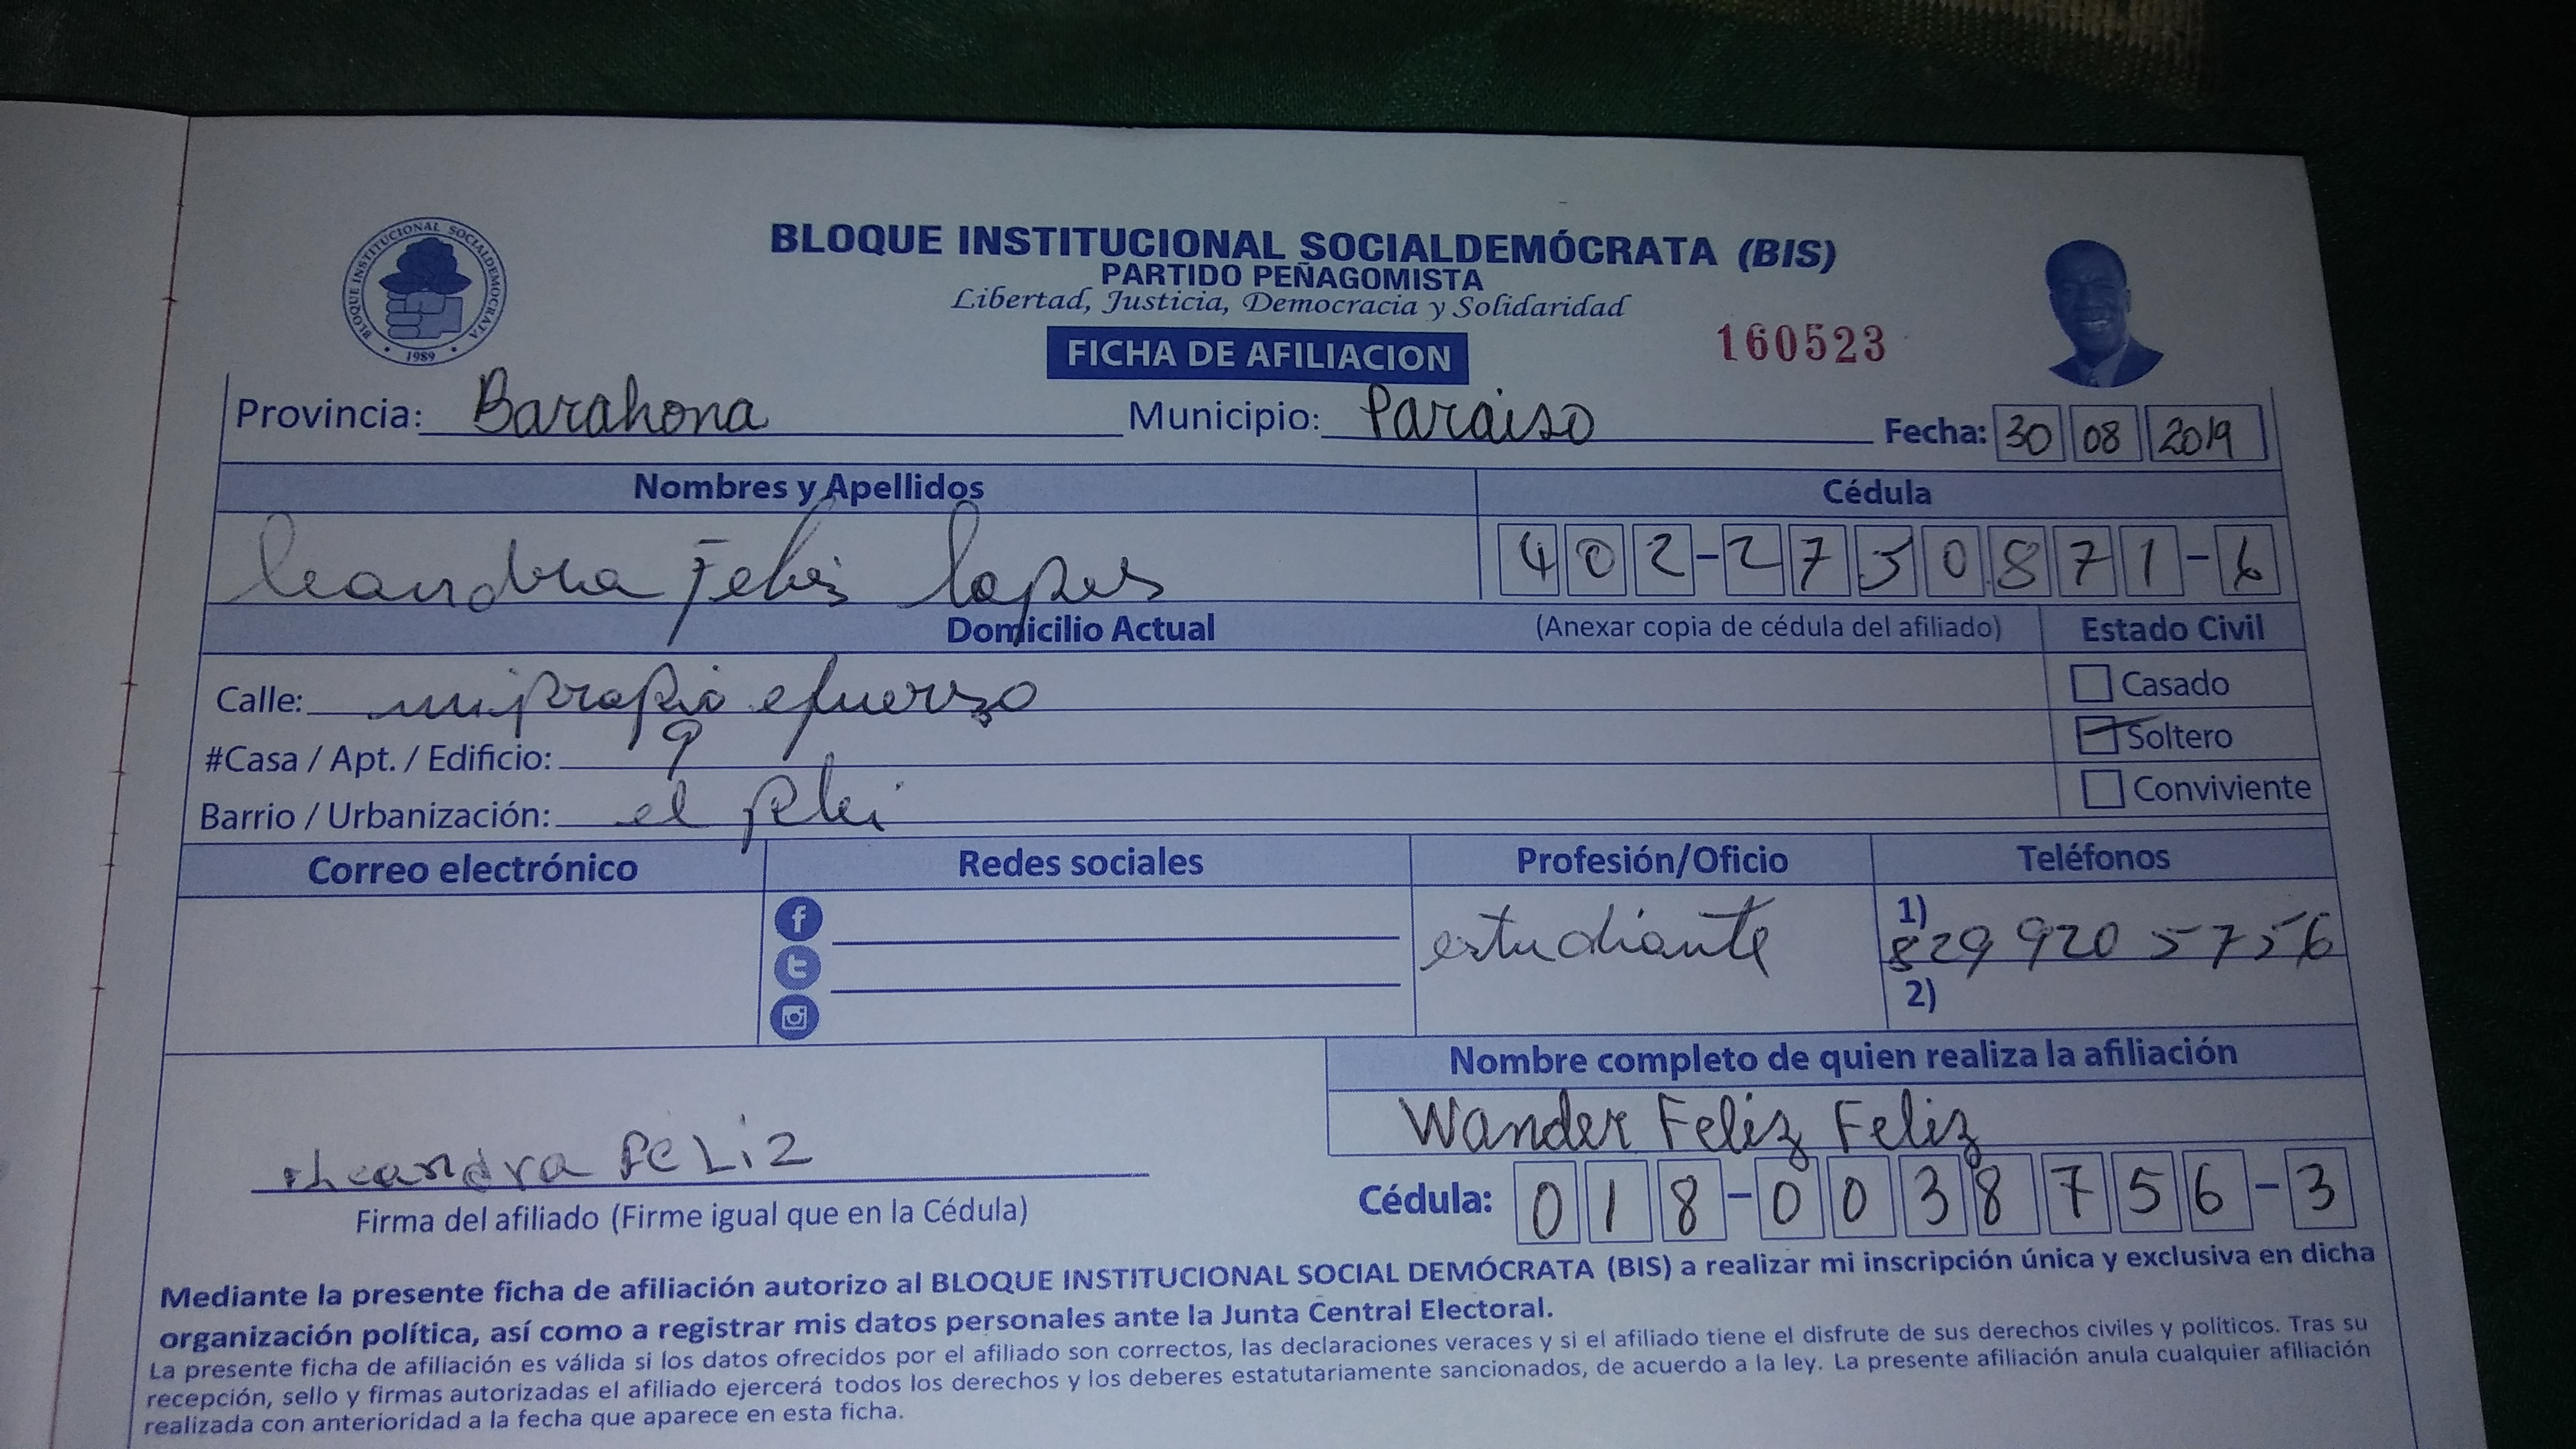 BLOQUE INSTITUCIONAL SOCIALDEMOCRATA
1989
BLOQUE INSTITUCIONAL SOCIALDEMÓCRATA (BIS)
PARTIDO PEÑAGOMISTA
Libertad, Justicia, Democracia y Solidaridad
FICHA DE AFILIACION
160523
Provincia: Barahona Municipio: Paraiso Fecha: 30 08 2019
Nombres y Apellidos Cédula
leandra Feliz lopes 402-2750871-6
Domicilio Actual (Anexar copia de cédula del afiliado) Estado Civil
Calle: mi propio efuerzo Casado
#Casa / Apt. / Edificio: 9 Soltero
Barrio / Urbanización: el Conviviente
Correo electrónico Redes sociales Profesión/Oficio Teléfonos
estudiante 1) 829 920 5756
2)
Nombre completo de quien realiza la afiliación
Wander Feliz Feliz
Leandra FeLiz
Firma del afiliado (Firme igual que en la Cédula) Cédula: 018-0038756-3
Mediante la presente ficha de afiliación autorizo al BLOQUE INSTITUCIONAL SOCIAL DEMÓCRATA (BIS) a realizar mi inscripción única y exclusiva en dicha
organización política, así como a registrar mis datos personales ante la Junta Central Electoral.
La presente ficha de afiliación es válida si los datos ofrecidos por el afiliado son correctos, las declaraciones veraces y si el afiliado tiene el disfrute de sus derechos civiles y políticos. Tras su
recepción, sello y firmas autorizadas el afiliado ejercerá todos los derechos y los deberes estatutariamente sancionados, de acuerdo a la ley. La presente afiliación anula cualquier afiliación
realizada con anterioridad a la fecha que aparece en esta ficha.